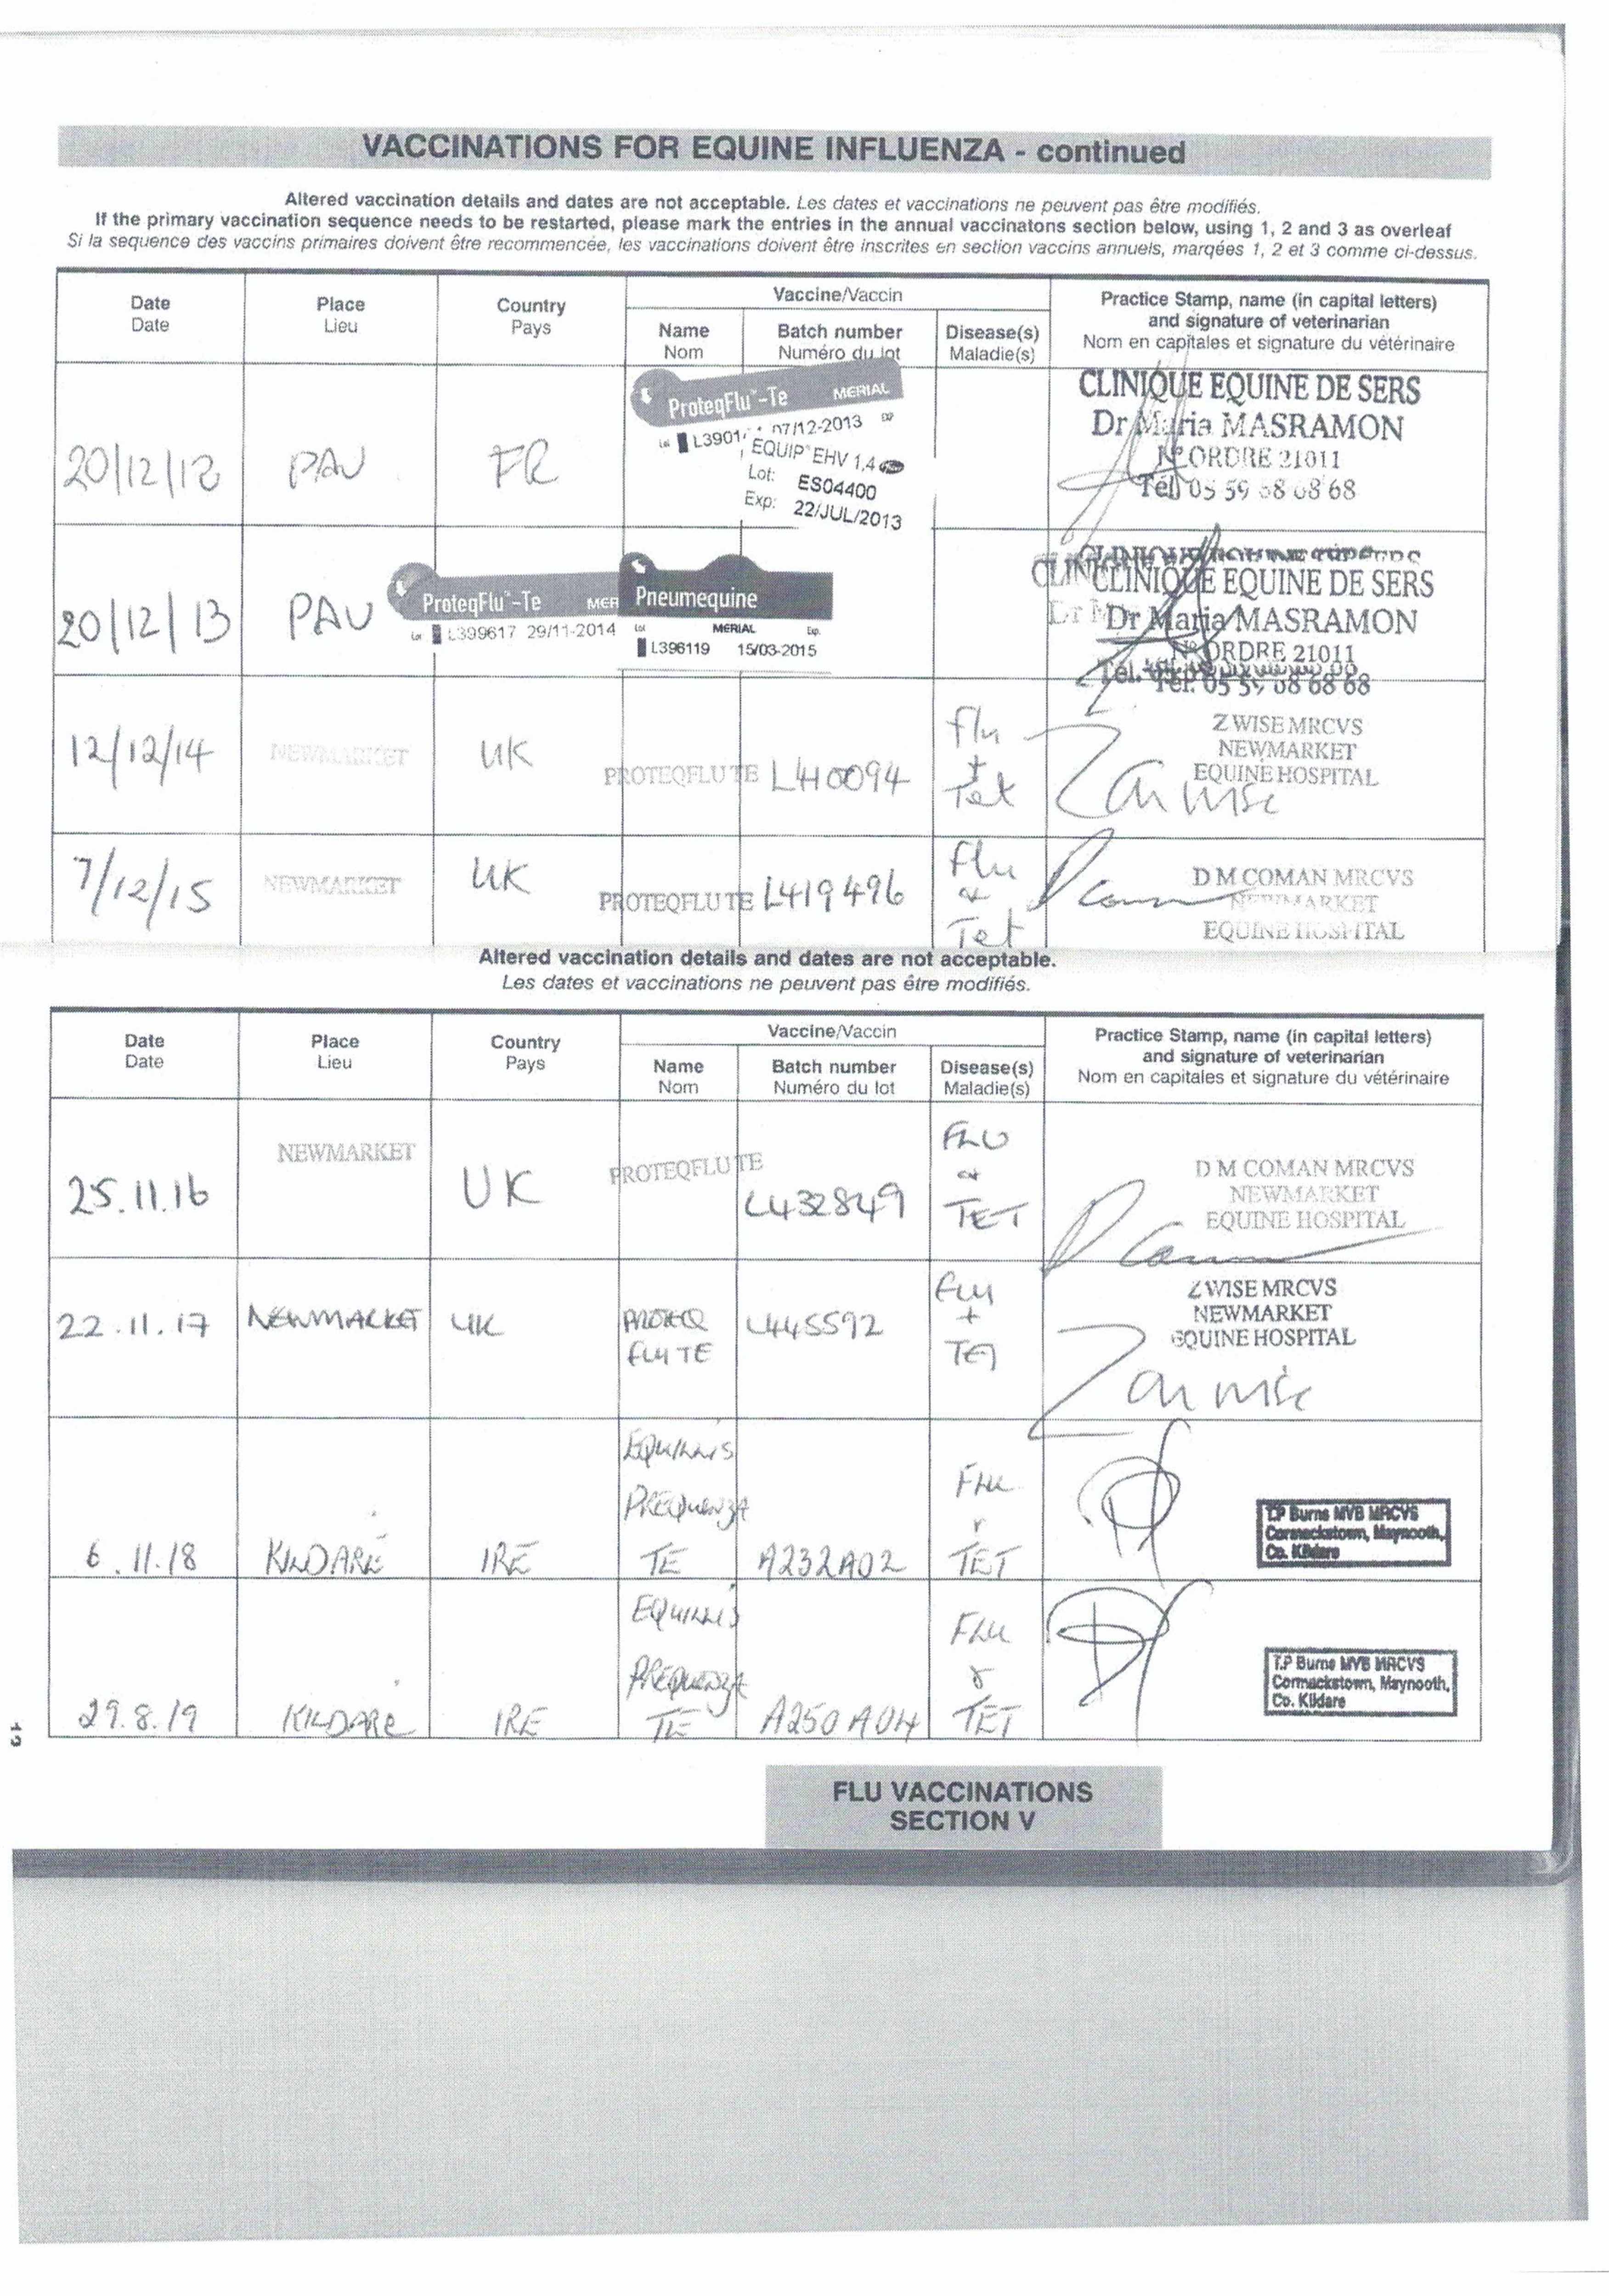 VACCINATIONS FOR EQUINE INFLUENZA - continued
Altered vaccination details and dates are not acceptable. Les dates et vaccinations ne peuvent pas être modifiés.
If the primary vaccination sequence needs to be restarted, please mark the entries in the annual vaccinatons section below, using 1, 2 and 3 as overleaf
Si la sequence des vaccins primaires doivent être recommencée, les vaccinations doivent être inscrites en section vaccins annuels, marqées 1, 2 et 3 comme ci-dessus.
Date Place Country Vaccine/Vaccin Practice Stamp, name (in capital letters)
Date Lieu Pays and signature of veterinarian
Name Batch number Disease(s) Nom en capitales et signature du vétérinaire
Nom Numéro du lot Maladie(s)
20/12/12 PAU FR
ProteqFlu-Te MERIAL
Lot L3901 07/12-2013
EQUIP EHV 1,4
Lot: ES04400
Exp: 22/JUL/2013
CLINIQUE EQUINE DE SERS
Dr Maria MASRAMON
N° ORDRE 21011
Tél. 05 59 68 68 68
20/12/13 PAU
ProteqFlu-Te MER
Lot L399617 29/11-2014
Pneumequine
Lot MERIAL Exp.
L396119 15/03-2015
CLINIQUE EQUINE DE SERS
Dr Maria MASRAMON
N° ORDRE 21011
Tél. 05 59 68 68 68
12/12/14 NEWMARKET UK PROTEQFLU TE L410094 flu + Tet
Z WISE MRCVS
NEWMARKET
EQUINE HOSPITAL
7/12/15 NEWMARKET UK PROTEQFLU TE L419496 Flu & Tet
D M COMAN MRCVS
NEWMARKET
EQUINE HOSPITAL
Altered vaccination details and dates are not acceptable.
Les dates et vaccinations ne peuvent pas être modifiés.
Date Place Country Vaccine/Vaccin Practice Stamp, name (in capital letters)
Date Lieu Pays and signature of veterinarian
Name Batch number Disease(s) Nom en capitales et signature du vétérinaire
Nom Numéro du lot Maladie(s)
25.11.16 NEWMARKET UK PROTEQFLU TE L432849 FLU & TET
D M COMAN MRCVS
NEWMARKET
EQUINE HOSPITAL
22.11.17 NEWMARKET UK PROTEQ FLU TE L445592 FLU + TET
Z WISE MRCVS
NEWMARKET
EQUINE HOSPITAL
6.11.18 KILDARE IRE EQUILIS PREQUENZA TE A232A02 FLU & TET
T.P Burns MVB MRCVS
Cormackstown, Maynooth,
Co. Kildare
29.8.19 KILDARE IRE EQUILIS PREQUENZA TE A250A04 FLU & TET
T.P Burns MVB MRCVS
Cormackstown, Maynooth,
Co. Kildare
FLU VACCINATIONS
SECTION V